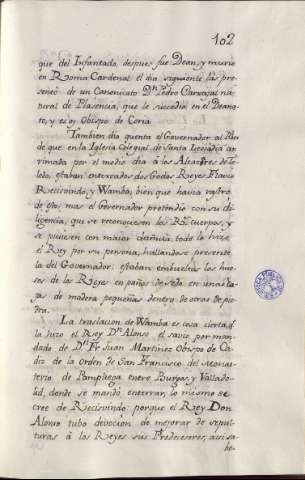 102
que del Infantado, despues fue Dean, y murio
en Roma Cardenal el dia siguiente las pre-
sentó de un Canonicato Dⁿ Pedro Carvajal na-
tural de Plasencia, que le succedió en el Deana-
to, y es oy Obispo de Coria.
Tambien dio quenta el Governador al Rey
de que en la Iglesia Colegial de Santa Leocadia ar-
rimada por el medio dia à los Alcazares de To-
ledo, estaban enterrados dos Godos Reyes Flavio
Recisvindo, y Wamba, bien que havia rastro
de esto, mas el Governador pretendió con su di-
ligencia, que se reconociesen los Rˢ cuerpos, y
se pusiesen con maior decencia, todo lo hizo
el Rey por su persona, hallandose presente
la del Governador: estaban embueltos los hue-
sos de los Reyes en paños de seda, en unas ca-
jas de madera pequeñas dentro de otras de pie-
dra.
La traslacion de Wamba es cosa cierta, qᵉ
la hizo el Rey Dⁿ Alonso el savio, por man-
dado de Dⁿ Fr Juan Martinez Obispo de Ca-
diz de la Orden de San Francisco del Monas-
terio de Pampliega entre Burgos y Vallado-
lid, donde se mandó enterrar, lo mismo se
cree de Recisvindo: porque el Rey Don
Alonso tubo devocion de mejorar de sepul-
turas à los Reyes sus Predecesores, assi sa-
be-